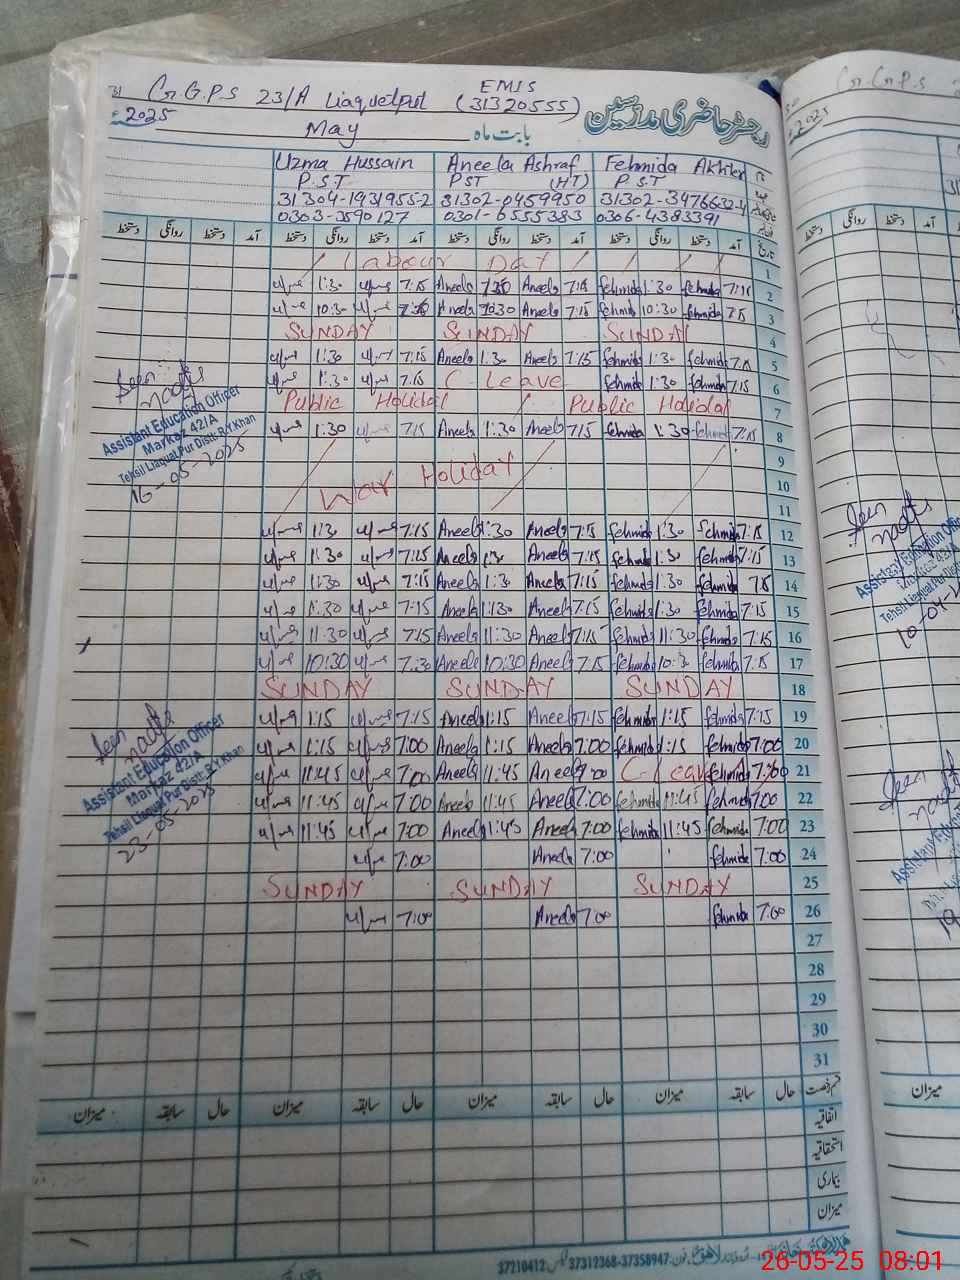 G.G.P.S 23/A Liaquatpur
EMIS
(31320555)
رجسٹر حاضری مدرسین
2025
May
بابت ماہ
Uzma Hussain Aneela Ashraf Fehmida Akhter
P.S.T PST (HT) P.S.T
31304-1931955-2 31302-0459950 31302-3476632-4
0303-3590127 0301-6555383 0306-4383391
دستخط روانگی دستخط آمد دستخط روانگی دستخط آمد دستخط روانگی دستخط آمد دستخط روانگی دستخط آمد تاریخ
Labour Day 1
1:30 7:15 Aneela Aneela 7:15 Fehmida 1:30 Fehmida 7:15 2
10:30 Aneela 10:30 Aneela 7:15 Fehmida 10:30 Fehmida 7:15 3
SUNDAY SUNDAY SUNDAY 4
1:30 7:15 Aneela 1:30 Aneela 7:15 Fehmida 1:30 Fehmida 7:15 5
1:30 7:15 C-Leave Fehmida 1:30 Fehmida 7:15 6
Public Holiday Public Holiday 7
1:30 7:15 Aneela 1:30 Aneela 7:15 Fehmida 1:30 Fehmida 7:15 8
9
War Holiday 10
11
1:30 7:15 Aneela 1:30 Aneela 7:15 Fehmida 1:30 Fehmida 7:15 12
1:30 7:15 Aneela 1:30 Aneela 7:15 Fehmida 1:30 Fehmida 7:15 13
1:30 7:15 Aneela 1:30 Aneela 7:15 Fehmida 1:30 Fehmida 7:15 14
1:30 7:15 Aneela 1:30 Aneela 7:15 Fehmida 1:30 Fehmida 7:15 15
11:30 7:15 Aneela 11:30 Aneela 7:15 Fehmida 11:30 Fehmida 7:15 16
10:30 Aneela 10:30 Aneela 7:15 Fehmida 10:3 Fehmida 7:15 17
SUNDAY SUNDAY SUNDAY 18
1:15 7:15 Aneela 1:15 Aneela 7:15 Fehmida 1:15 Fehmida 7:15 19
1:15 7:00 Aneela 1:15 Aneela 7:00 Fehmida 1:15 Fehmida 7:00 20
11:45 7:00 Aneela 11:45 Aneela 7:00 C-Leave Fehmida 7:00 21
11:45 7:00 Aneela 11:45 Aneela 7:00 Fehmida 11:45 Fehmida 7:00 22
11:45 7:00 Aneela 11:45 Aneela 7:00 Fehmida 11:45 Fehmida 7:00 23
7:00 Aneela 7:00 Fehmida 7:00 24
SUNDAY SUNDAY SUNDAY 25
7:00 Aneela 7:00 Fehmida 7:00 26
27
28
29
30
31
میزان سابقہ حال میزان سابقہ حال میزان سابقہ حال میزان سابقہ حال قسم رخصت
اتفاقیہ
استحقاقیہ
بیماری
میزان
Seen
Assistant Education Officer
Markaz 42/A
Tehsil Liaquat Pur Distt: R.Y.Khan
16-05-2025
Seen
Assistant Education Officer
Markaz 42/A
Tehsil Liaquat Pur Distt: R.Y.Khan
23-05-2025
37210412 37312368-37358947 فون:
G.G.P.S
2025
دستخط روانگی دستخط آمد
Seen
میزان
26-05-25 08:01